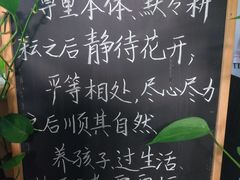 尊重本体、默々耕
耘之后静待花开;
平等相处,尽心尽力
之后顺其自然、
养孩子、过生活、